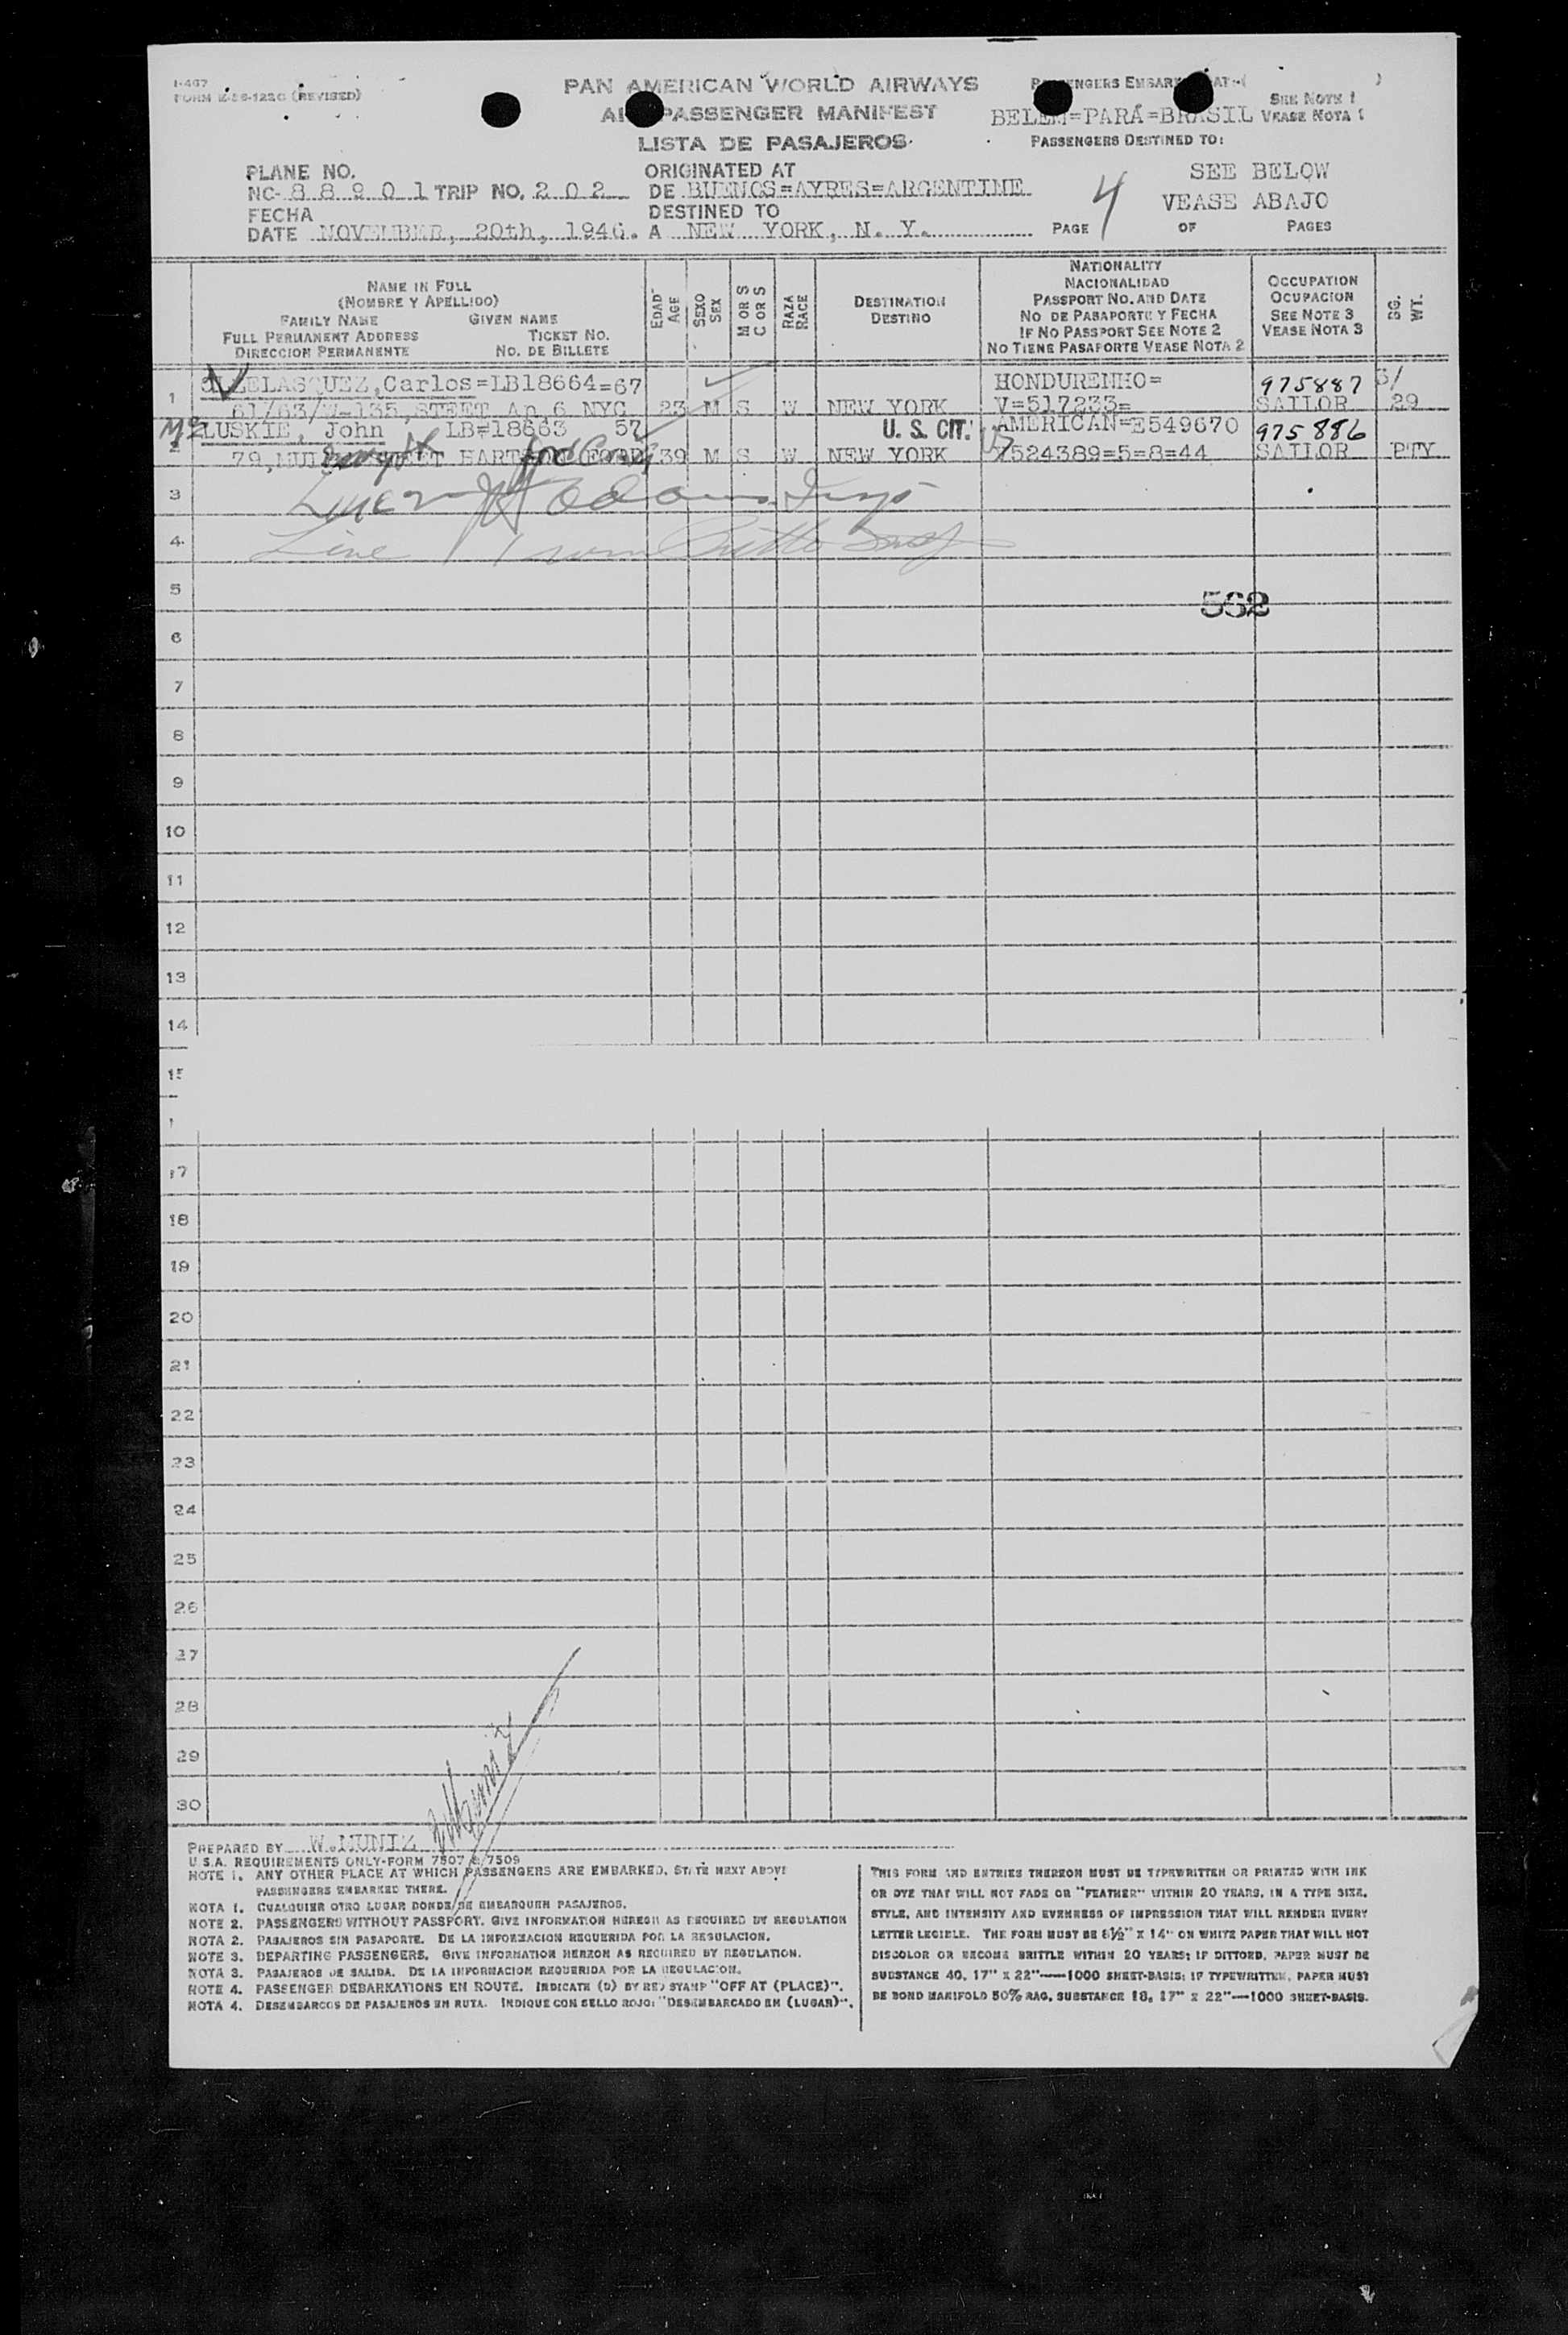 I-467
FORM (REVISED)
PAN AMERICAN WORLD AIRWAYS
PASSENGER MANIFEST
LISTA DE PASAJEROS
SEE NOTE 1
BELEM=PARÁ=BRASIL VEASE NOTA 1
PASSENGERS DESTINED TO:
PLANE NO.
NC- 8 8 9 0 1 TRIP NO. 2 0 2
ORIGINATED AT
DE BUENOS=AYRES=ARGENTINE
SEE BELOW
VEASE ABAJO
FECHA
DATE NOVEMBER, 20th, 1946.
DESTINED TO
A NEW YORK, N. Y.
PAGE 4 OF PAGES
NAME IN FULL
(NOMBRE Y APELLIDO)
FAMILY NAME GIVEN NAME
FULL PERMANENT ADDRESS TICKET NO.
DIRECCION PERMANENTE NO. DE BILLETE
EDAD- AGE
SEXO SEX
M OR S C OR S
RAZA RACE
DESTINATION
DESTINO
NATIONALITY
NACIONALIDAD
PASSPORT NO. AND DATE
NO DE PASAPORTE Y FECHA
IF NO PASSPORT SEE NOTE 2
NO TIENE PASAPORTE VEASE NOTA 2
OCCUPATION
OCUPACION
SEE NOTE 3
VEASE NOTA 3
WT.
1 VELASQUEZ, Carlos=LB18664=67 HONDURENHO= 975887
61/63/W-135, STEET Ap. 6 NYC 23 M S W NEW YORK V=517233= SAILOR 29
Mc LUSKIE, John LB=18663 57 U. S. CIT. AMERICAN=E549670 975886
2 79, HART 39 M S W NEW YORK 524389=5=8=44 SAILOR PTY
3
4 Line 1
5
562
6
7
8
9
10
11
12
13
14
17
18
19
20
21
22
23
24
25
26
27
28
29
30
PREPARED BY W. MUNIZ
U.S.A. REQUIREMENTS ONLY-FORM 7507 & 7509
NOTE 1. ANY OTHER PLACE AT WHICH PASSENGERS ARE EMBARKED, STATE NEXT ABOVE
PASSENGERS EMBARKED THERE.
NOTA 1. CUALQUIER OTRO LUGAR DONDE SE EMBARQUEN PASAJEROS.
NOTE 2. PASSENGERS WITHOUT PASSPORT. GIVE INFORMATION HEREON AS REQUIRED BY REGULATION
NOTA 2. PASAJEROS SIN PASAPORTE. DE LA INFORMACION REQUERIDA POR LA REGULACION.
NOTE 3. DEPARTING PASSENGERS. GIVE INFORMATION HEREON AS REQUIRED BY REGULATION.
NOTA 3. PASAJEROS DE SALIDA. DE LA INFORMACION REQUERIDA POR LA REGULACION.
NOTE 4. PASSENGER DEBARKATIONS EN ROUTE. INDICATE (D) BY RED STAMP "OFF AT (PLACE)".
NOTA 4. DESEMBARCOS DE PASAJEROS EN RUTA. INDIQUE CON SELLO ROJO: "DESEMBARCADO EN (LUGAR)".
THIS FORM AND ENTRIES THEREON MUST BE TYPEWRITTEN OR PRINTED WITH INK
OR DYE THAT WILL NOT FADE OR "FEATHER" WITHIN 20 YEARS, IN A TYPE SIZE,
STYLE, AND INTENSITY AND EVENNESS OF IMPRESSION THAT WILL RENDER EVERY
LETTER LEGIBLE. THE FORM MUST BE 8½" X 14" ON WHITE PAPER THAT WILL NOT
DISCOLOR OR BECOME BRITTLE WITHIN 20 YEARS; IF DITTOED, PAPER MUST BE
SUBSTANCE 40, 17" X 22"—1000 SHEET-BASIS; IF TYPEWRITTEN, PAPER MUST
BE BOND MANIFOLD 50% RAG, SUBSTANCE 18, 17" X 22"—1000 SHEET-BASIS.